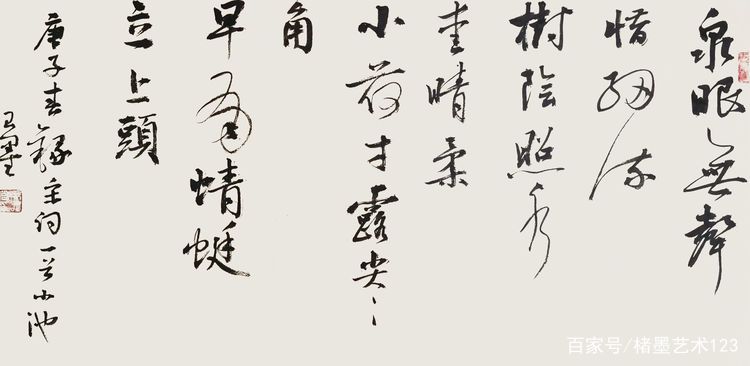 泉眼無聲
惜細流
樹陰照水
愛晴柔
小荷才露尖〻
角
早有蜻蜓
立上頭
庚子春錄宋词一首小池
百家号/楮墨艺术123